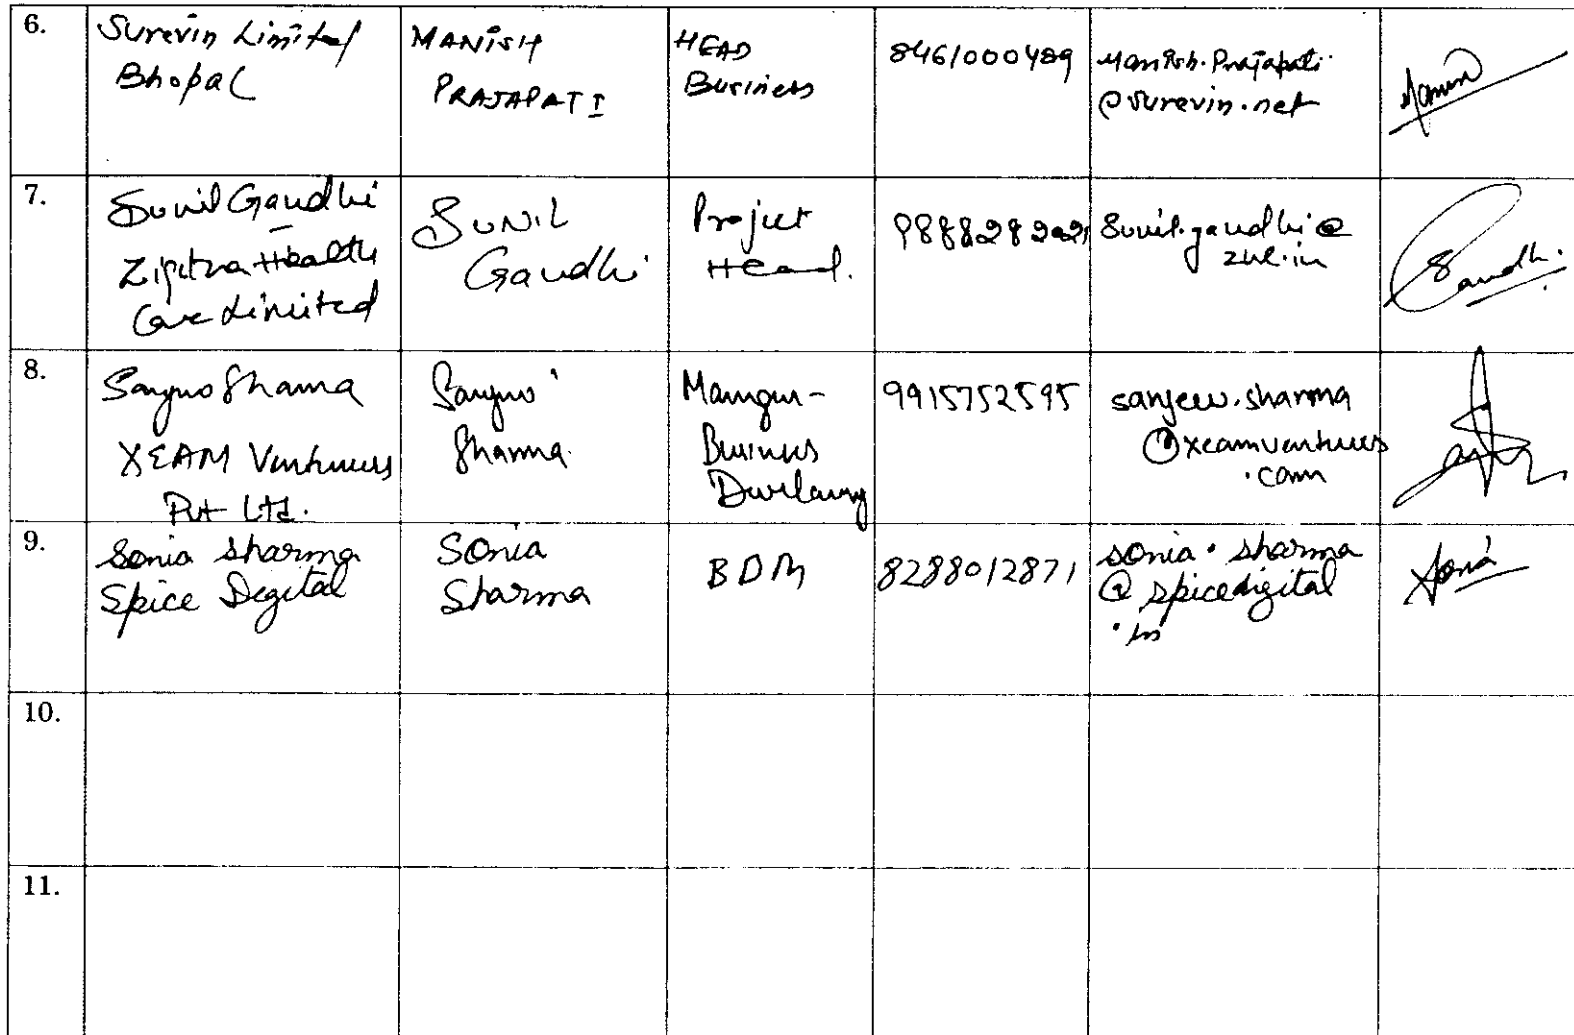 6.
Surevin Limited
Bhopal
MANISH
PRAJAPATI
HEAD
Business
8461000489
Manish.Prajapati
@surevin.net
7.
Sunil Gandhi
Ziqitza Health
Care Limited
SUNIL
Gandhi
Project
Head.
Sunil.gandhi@
zhl.in
Gandhi.
8.
Sanjeev Sharma
XEAM Ventures
Pvt Ltd.
Sanjeev
Sharma
Manager-
Business
9915752595
sanjeev.sharma
@xeamventures
.com
9.
Sonia Sharma
Spice Digital
Sonia
Sharma
BDM
8288012871
sonia.sharma
@spicedigital
.in
Sonia
10.
11.